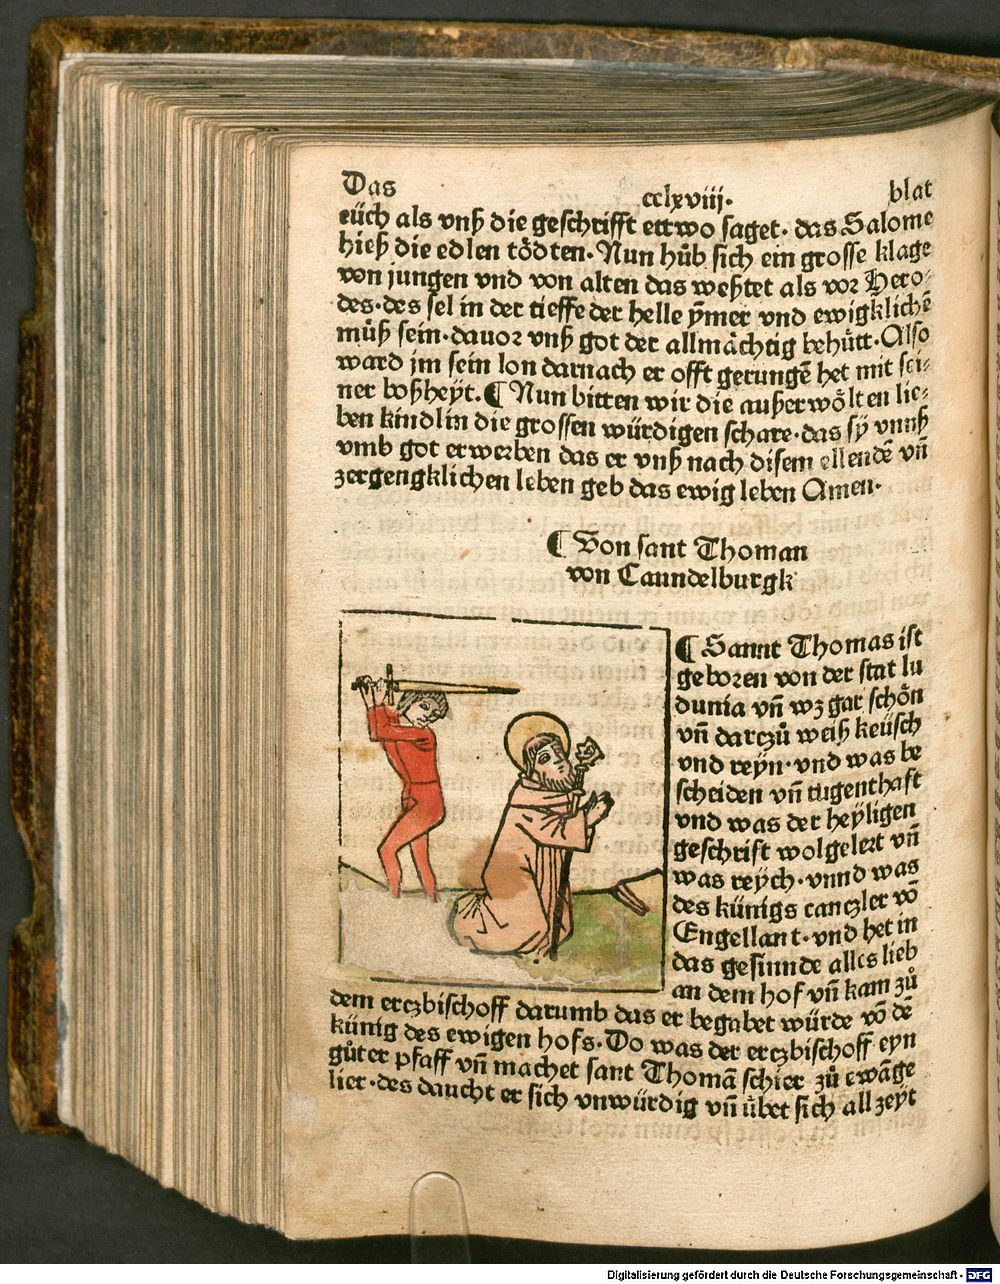 Das cclxviij. blat
eüch als vnß die geschrifft ettwo saget. das Salome
hieß die edlen tödten. Nun hůb sich ein grosse klage
von jungen vnd von alten das weßtet als vor Hero⸗
des. des sel in der tieffe der helle ÿmer vnd ewigklichē
můß sein. dauor vnß got der allmächtig behüt̉t. Also
ward jm sein lon darnach er offt gerungē het mit sei⸗
ner boßheÿt. ¶ Nun bitten wir die außerwölten lie⸗
ben kindlin die grossen würdigen schare. das sÿ vnnß
vmb got erwerben das er vnß nach disem ellendē vñ
zergengklichen leben geb das ewig leben Amen.
¶ Von sant Thoman
von Canndelburgk
¶ Sannt Thomas ist
geboren von der stat lu
dunia vñ wz gar schön
vñ darczů weiß keüsch
vnd reÿn. vnd was be
scheiden vñ tugenthaft
vnd was der heÿligen
geschrift wolgelert vñ
was reÿch. vnnd was
des künigs canczler vō
Engellant. vnd het in
das gesinnde alles lieb
an dem hof vñ kam zů
dem erczbischoff darumb das er begabet würde vō dē
künig des ewigen hofs. Do was der erczbischoff eyn
gůter pfaff vñ machet sant Thomā schier zů ewāge
lier. des daucht er sich vnwürdig vñ übet sich all zeÿt
Digitalisierung gefördert durch die Deutsche Forschungsgemeinschaft - DFG